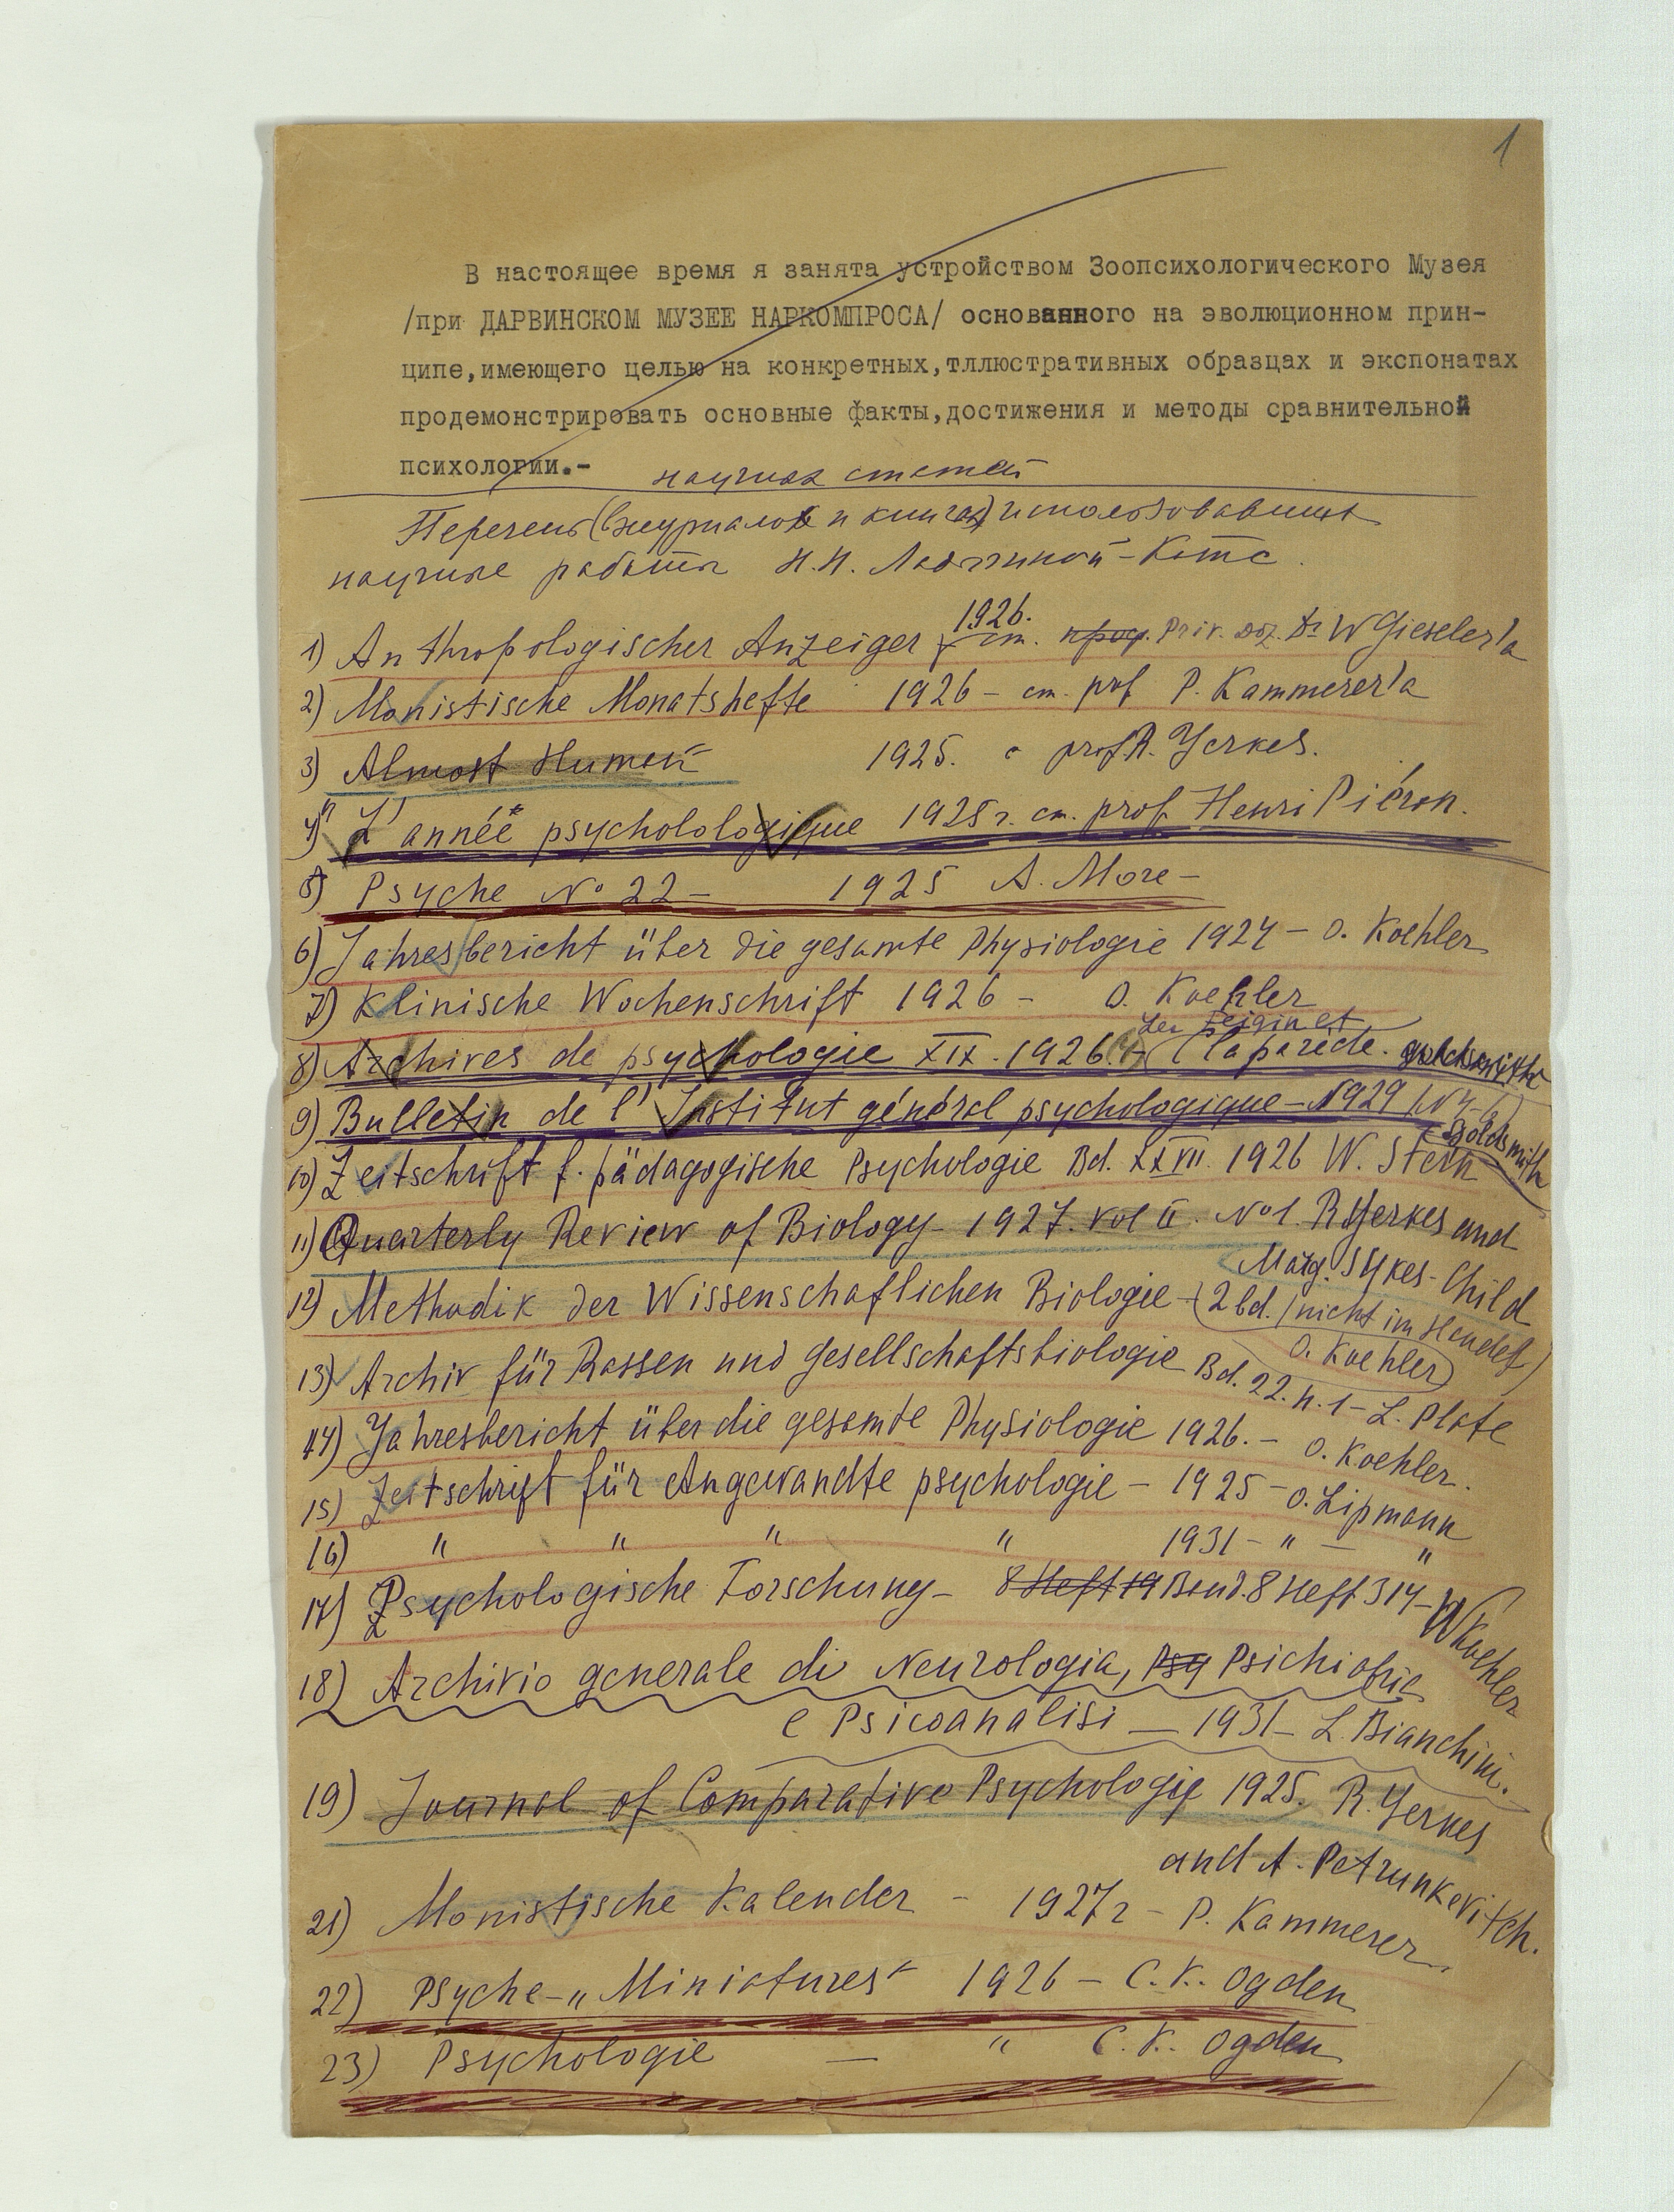 1
В настоящее время я занята устройством Зоопсихологического Музея
/при ДАРВИНСКОМ МУЗЕЕ НАРКОМПРОСА/ основанного на эволюционном прин-
ципе,имеющего целью на конкретных,тллюстративных образцах и экспонатах
продемонстрировать основные факты,достижения и методы сравнительной
психологии.-
научных статей
Перечень (журналов и книгах) использовавших
научные работы Н.Н. Ладыгиной-Котс.
1926.
1) Anthropologischer Anzeiger ст. проф. Priv. Doz. Dr W Gieseler'а
2) Monistische Monatshefte 1926 – ст. prof P. Kammerer'а
3) Almost Human" 1925. с prof R. Yerkes.
4) "L'année psychololologique 1925 г. ст. prof. Henri Piéron.
5) Psyche No 22 – 1925 A. More –
6) Jahresbericht über die gesamte Physiologie 1924 – O. Koehler
7) Klinische Wochenschrift 1926 – O. Koehler
8) Archives de psychologie XIX. 1926. – Claparède. Goldsmith
9) Bulletin de l'Institut général psychologique – 1929 (N 4-6)
Goldsmith
10) Zeitschrift f. pädagogische Psychologie Bd. XXVII. 1926 W. Stern
11) Quarterly Review of Biology – 1927. vol II. No 1. R Yerkes and
Marg. Sykes-Child
12) Methodik der Wissenschaflichen Biologie – (2 bd. / nicht im Handel)
O. Koehler)
13) Archiv für Rassen und gesellschaftsbiologie Bd. 22. H. 1 – L. Plate
14) Jahresbericht über die gesamte Physiologie 1926. – O. Koehler.
15) Zeitschrift für Angewandte psychologie – 1925 – O. Lipmann
16) " " " " 1931 – " – "
17) Psychologische Forschung – 8 Heft 19 Band. 8 Heft 3/4 – W Koehler
18) Archivio generale di Neurologia, Psy Psichiatria
e Psicoanalisi – 1931 – L Bianchini.
19) Journal of Comparative Psychologie 1925. R. Yerkes
and A. Petrunkevitch.
21) Monistische Kalender – 1927 г – P. Kammerer.
22) Psyche – „Miniatures" 1926 – C. K. Ogden
23) Psychologie — " C. K. Ogden